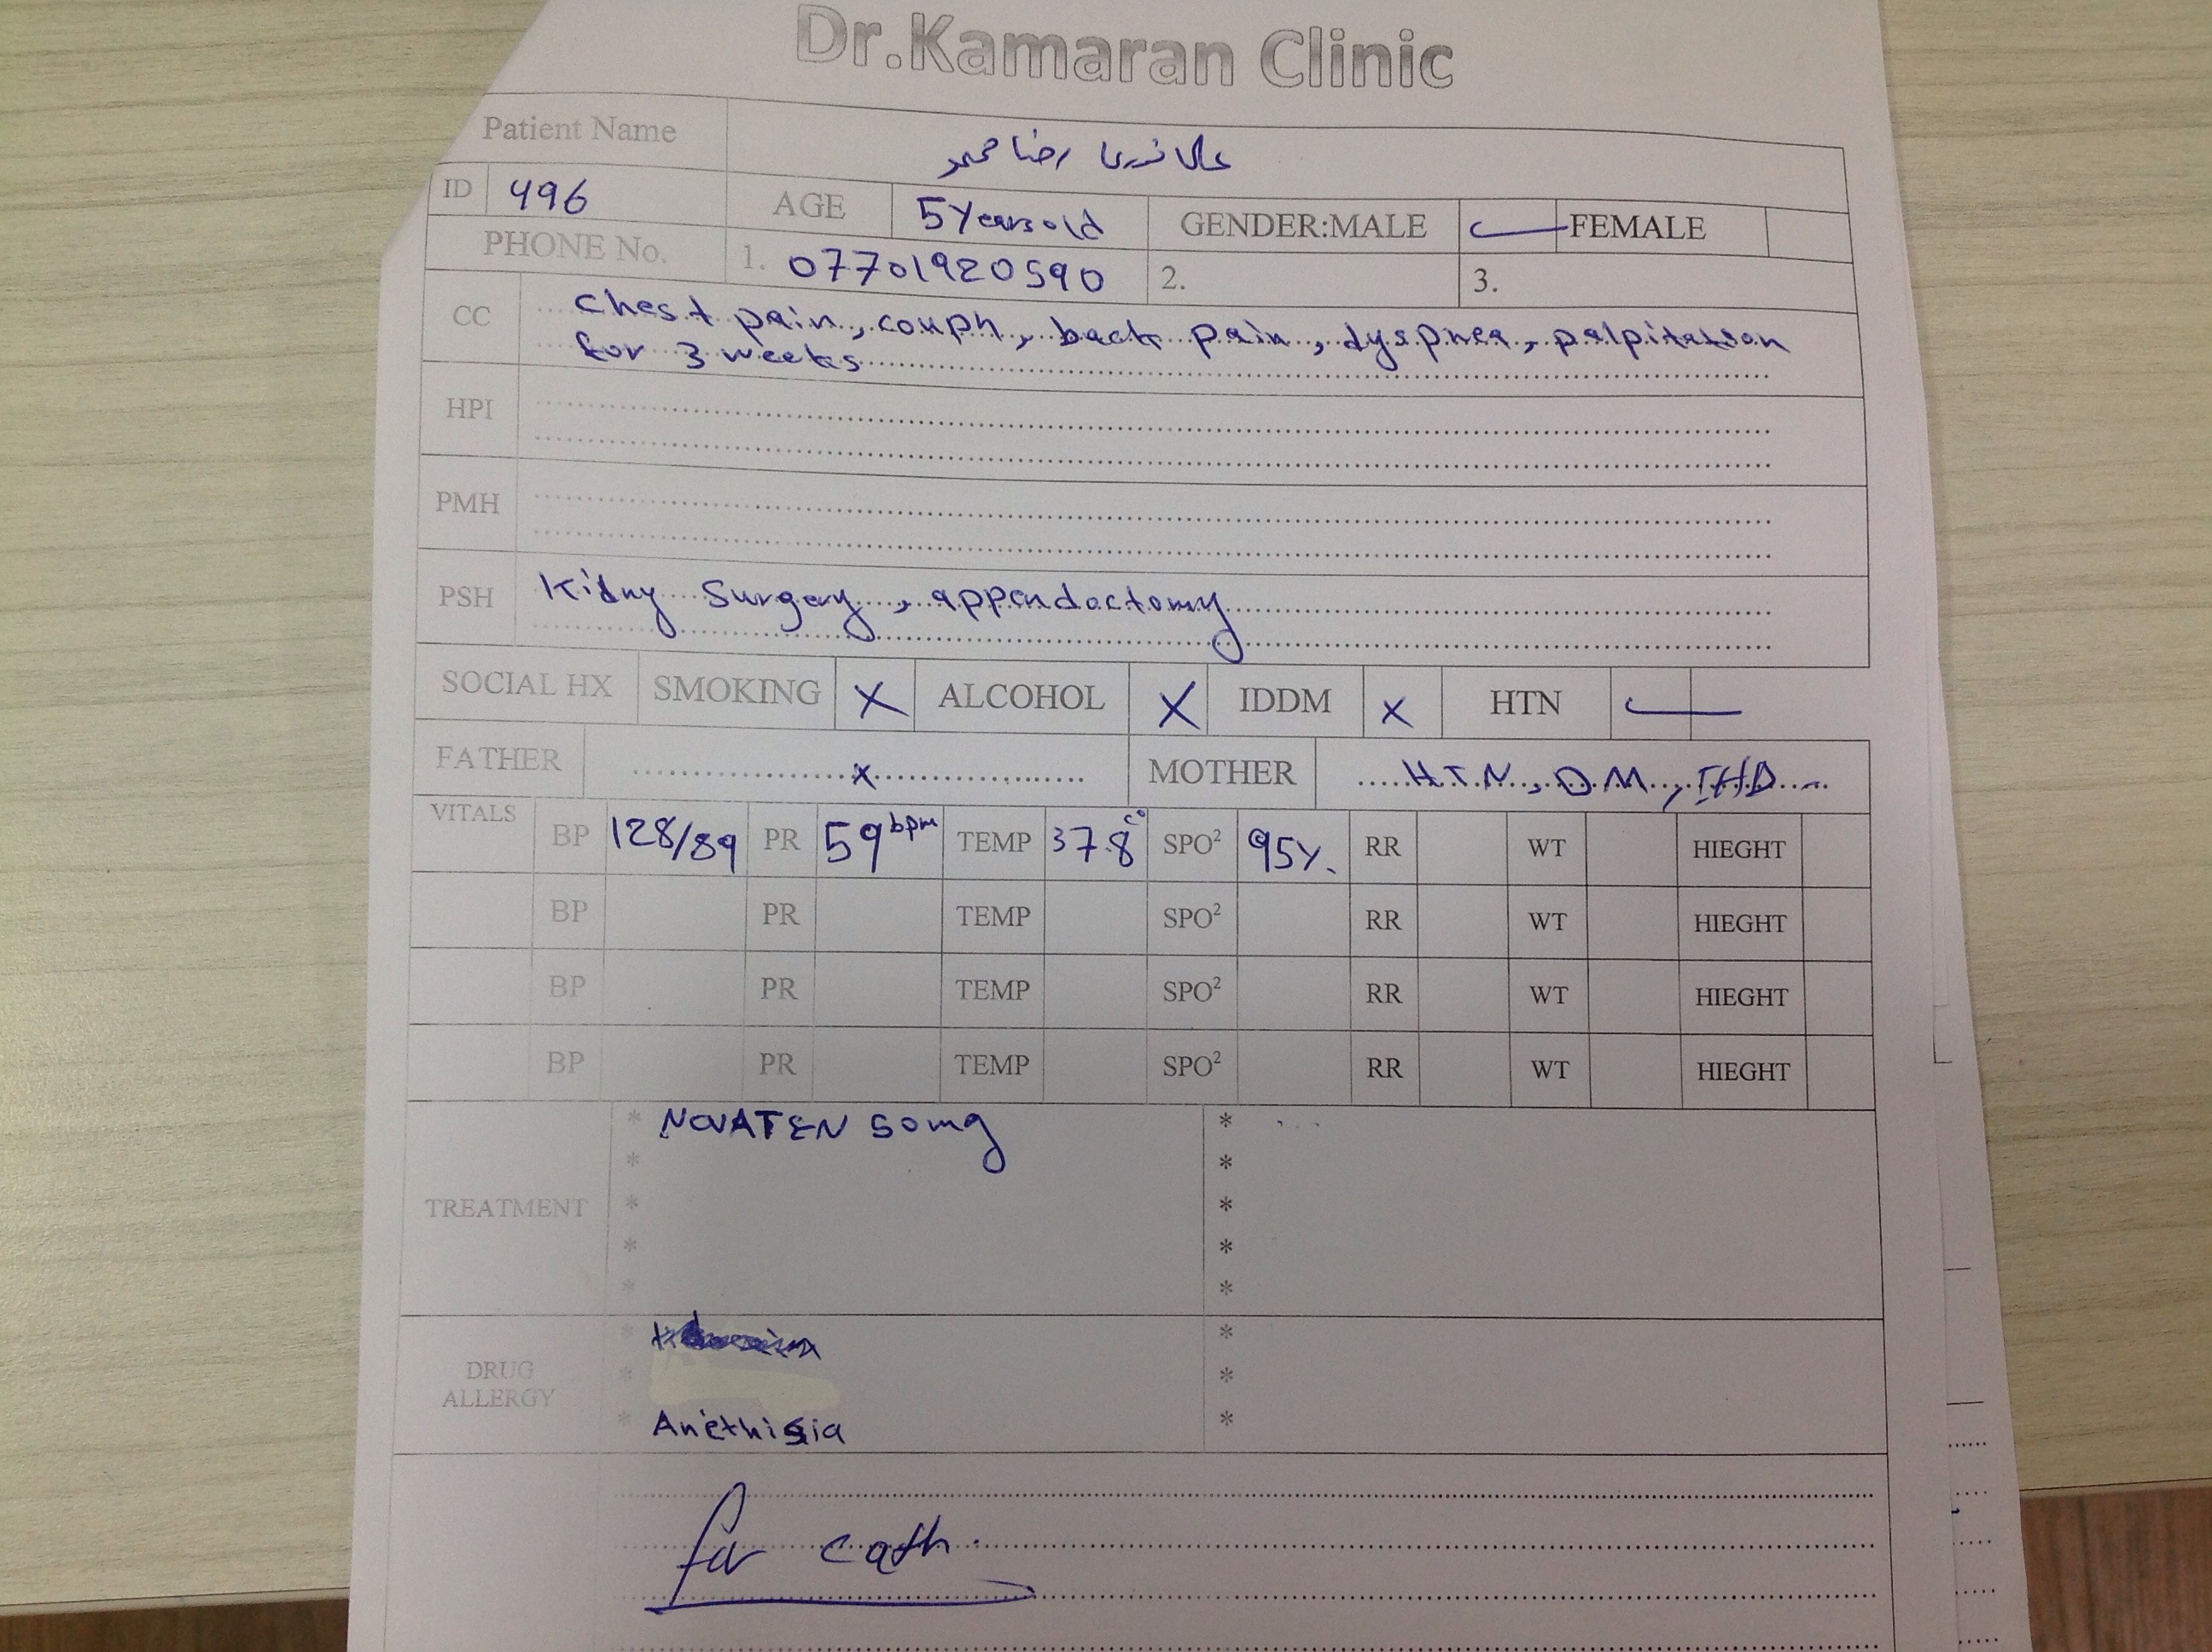 Dr.Kamaran Clinic
Patient Name رضا محمد
ID 496 AGE 5 Years old GENDER:MALE FEMALE
PHONE No. 1. 07701920590 2. 3.
CC chest pain, couph, back pain, dyspnea, palpitation
for 3 weeks
HPI
PMH
PSH Kidny Surgery, appendectomy
SOCIAL HX SMOKING X ALCOHOL X IDDM X HTN
FATHER x MOTHER H.T.N, D.M, IHD
VITALS BP 128/89 PR 59 bpm TEMP 37.8 c° SPO² 95% RR WT HIEGHT
BP PR TEMP SPO² RR WT HIEGHT
BP PR TEMP SPO² RR WT HIEGHT
BP PR TEMP SPO² RR WT HIEGHT
TREATMENT
* NOVATEN 50mg *
* *
* *
* *
* *
DRUG ALLERGY
* *
* *
* Anethisia *
for cath.